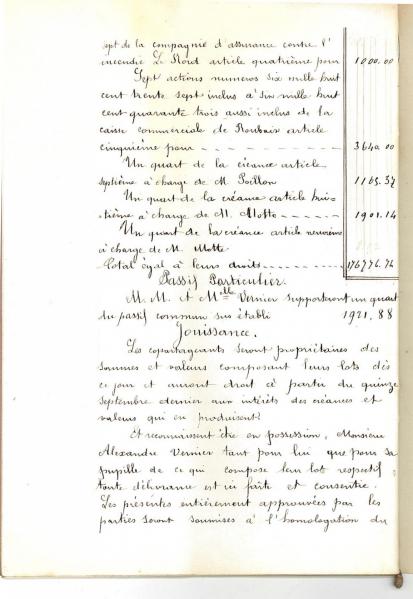 sept de la compagnie d'assurance contre l'
incendie Le Nord article quatrième pour 1000.00
Sept actions numeros six mille huit
cent trente sept inclus à six mille huit
cent quarante trois aussi inclus de la
caisse commerciale de Roubaix article
cinquième pour - - - - - - - 3640.00
Un quart de la créance article
septième à charge de M. Poillon 1165.37
Un quart de la créance article hui-
-tième à charge de M. Motte - - - - - 1901.14
Un quart de la créance article neuvième
à charge de M. Motte
Total égal à leurs droits - - - - - 176776.76
Passif Particulier.
M. M. et Melle Vernier supporteront un quart
du passif commun sus établi 1921.88
Jouissance.
Les copartageants seront propriétaires des
sommes et valeurs composant leurs lots dès
ce jour et auront droit à partir du quinze
septembre dernier aux intérêts des créances et
valeurs qui en produisent.
Et reconnaissent être en possession, Monsieur
Alexandre Vernier tant pour lui que pour sa
pupille de ce qui compose leur lot respectif
toute délivrance est ici faite et consentie.
Les présentes entièrement approuvées par les
parties seront soumises à l'homologation du